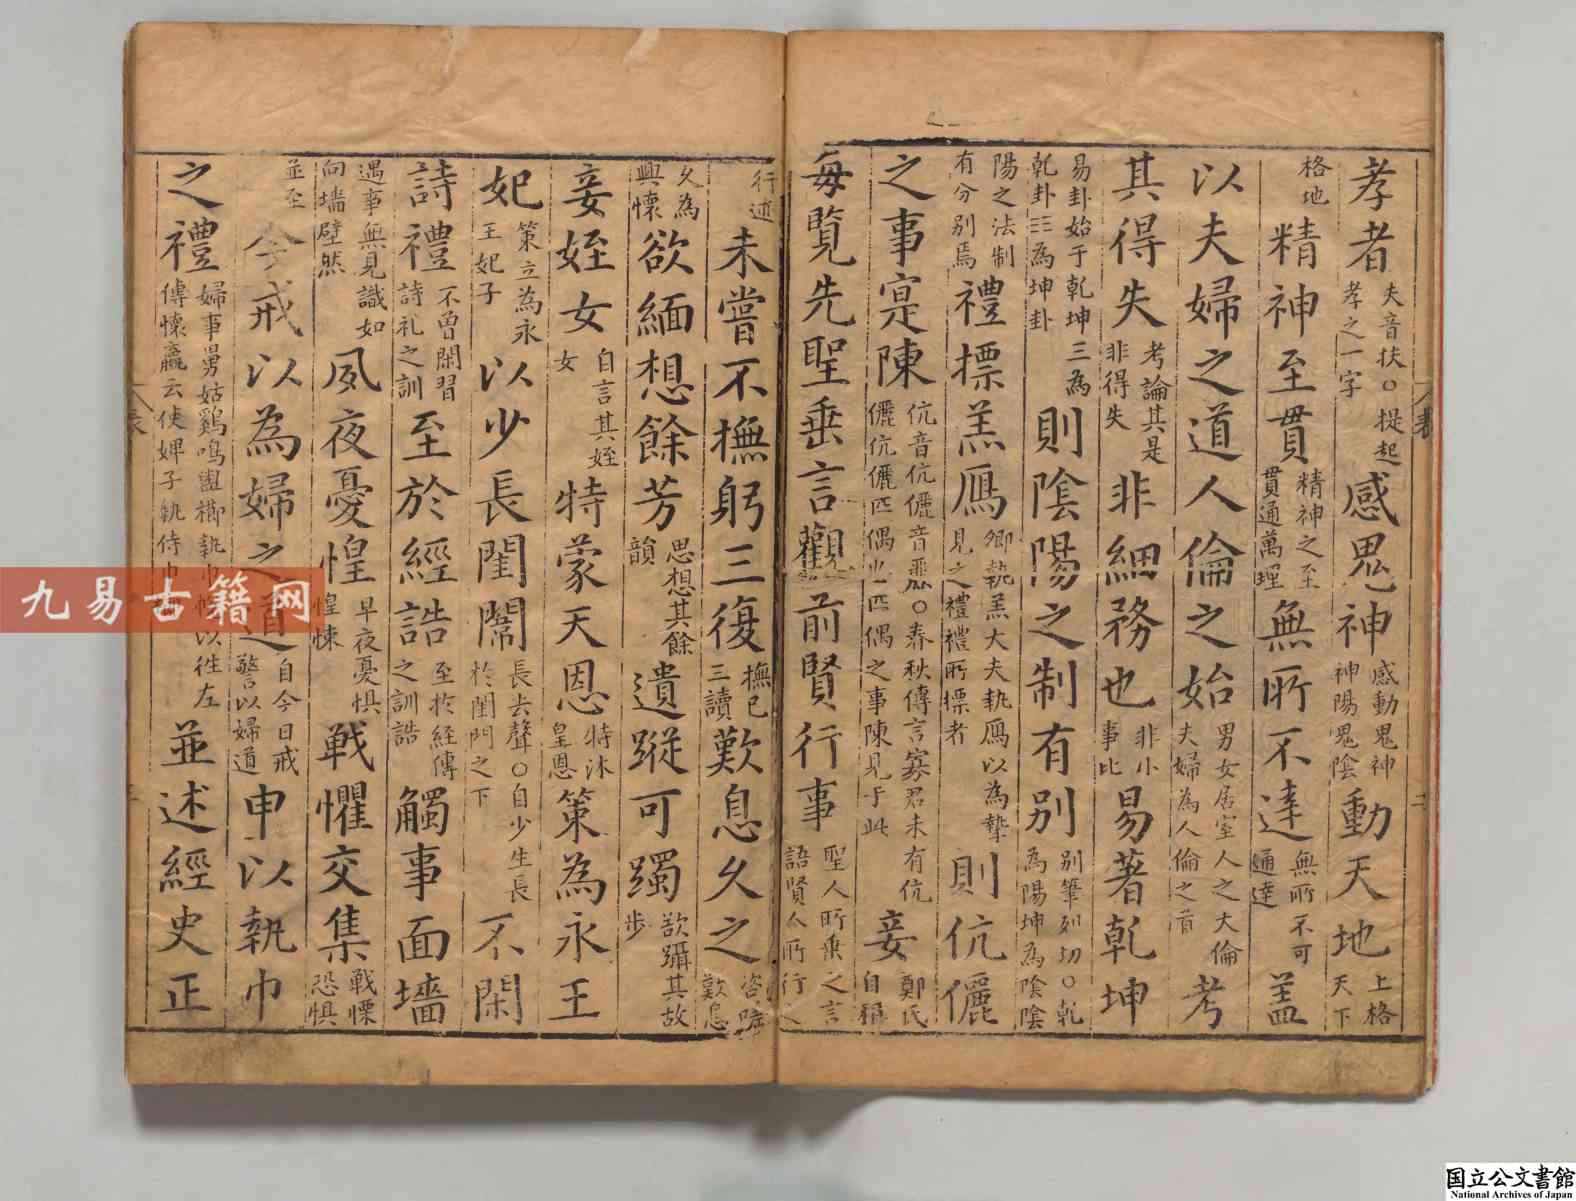 孝者夫音扶○提起孝之一字感鬼神感動鬼神神陽鬼陰動天地上格天下
格地精神至貫精神之至貫通萬理無所不達無所不可通達盖
以夫婦之道人倫之始男女居室人之大倫夫婦為人倫之首考
其得失考論其是非得失非細務也非小事比易著乾坤
易卦始于乾坤三為乾卦三三為坤卦則陰陽之制有別別筆列切○乾為陽坤為陰陰
陽之法制有分別焉禮標羔鴈卿執羔大夫執鴈以為摯見之禮禮所標者則伉儷
之事寔陳伉音伉儷音麗○春秋傳言寡君未有伉儷伉儷匹偶也匹偶之事陳見于此妾鄭氏自稱
毎覽先聖垂言觀前賢行事聖人所垂之言語賢人所行之
行迹未嘗不撫躬三復撫已三讀歎息久之咨嗟歎息
久為興懷欲緬想餘芳思想其餘韻遺蹤可躅欲躡其故步
妾姪女自言其姪女特蒙天恩特沐皇恩策為永王
妃策立為永王妃子以少長閨闈長去聲○自少生長於閨門之下不閑
詩禮不曾閑習詩礼之訓至於經誥至於経傳之訓誥觸事面墻
遇事無見識如向墻壁然夙夜憂惶早夜憂惧惶悚戰懼交集戰慄恐惧
並至今戒以為婦之道自今日戒警以婦道申以執巾
之禮婦事舅姑鷄鳴盥櫛執巾以徃左傳懷嬴云使婢子執侍巾並述經史正
九易古籍网
国立公文書館
National Archives of Japan